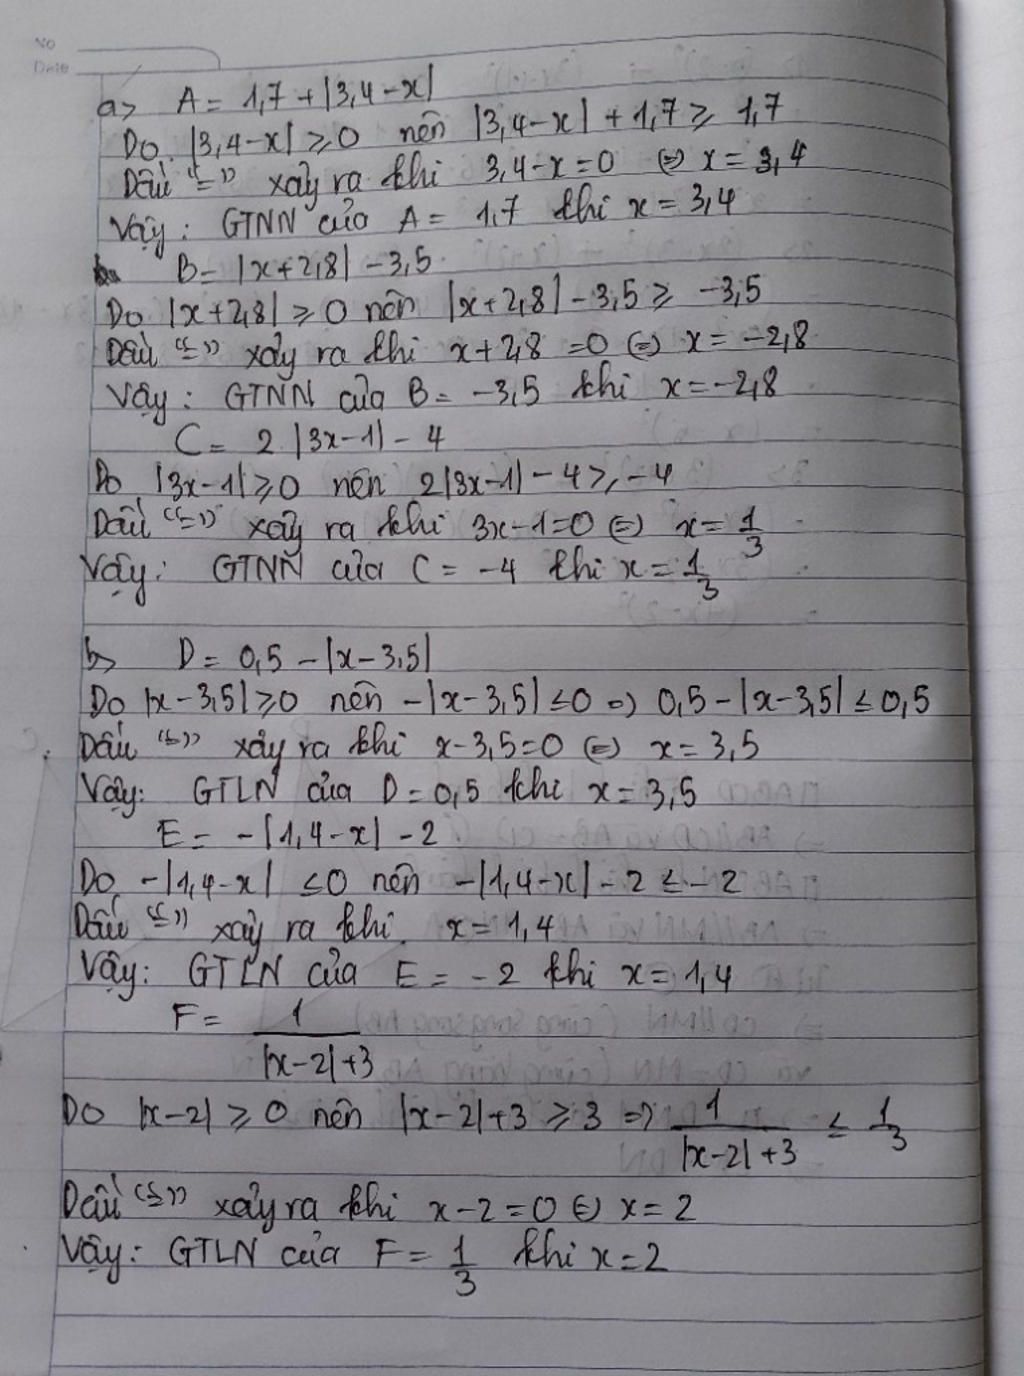 No
Date
a> A = 1,7 + |3,4 - x|
Do |3,4 - x| ≥ 0 nên |3,4 - x| + 1,7 ≥ 1,7
Dấu "=" xảy ra khi 3,4 - x = 0 ⇔ x = 3,4
Vậy: GTNN của A = 1,7 khi x = 3,4
B = |x + 2,8| - 3,5.
Do |x + 2,8| ≥ 0 nên |x + 2,8| - 3,5 ≥ -3,5
Dấu "=" xảy ra khi x + 2,8 = 0 ⇔ x = -2,8
Vậy: GTNN của B = -3,5 khi x = -2,8
C = 2.|3x - 1| - 4
Do |3x - 1| ≥ 0 nên 2|3x - 1| - 4 ≥ -4
Dấu "=" xảy ra khi 3x - 1 = 0 ⇔ x = 1/3
Vậy: GTNN của C = -4 khi x = 1/3
b> D = 0,5 - |x - 3,5|
Do |x - 3,5| ≥ 0 nên -|x - 3,5| ≤ 0 ⇒ 0,5 - |x - 3,5| ≤ 0,5
Dấu "=" xảy ra khi x - 3,5 = 0 ⇔ x = 3,5
Vậy: GTLN của D = 0,5 khi x = 3,5
E = -|1,4 - x| - 2
Do -|1,4 - x| ≤ 0 nên -|1,4 - x| - 2 ≤ -2
Dấu "=" xảy ra khi x = 1,4
Vậy: GTLN của E = -2 khi x = 1,4
F = 1/(|x - 2| + 3)
Do |x - 2| ≥ 0 nên |x - 2| + 3 ≥ 3 ⇒ 1/(|x - 2| + 3) ≤ 1/3
Dấu "=" xảy ra khi x - 2 = 0 ⇔ x = 2
Vậy: GTLN của F = 1/3 khi x = 2